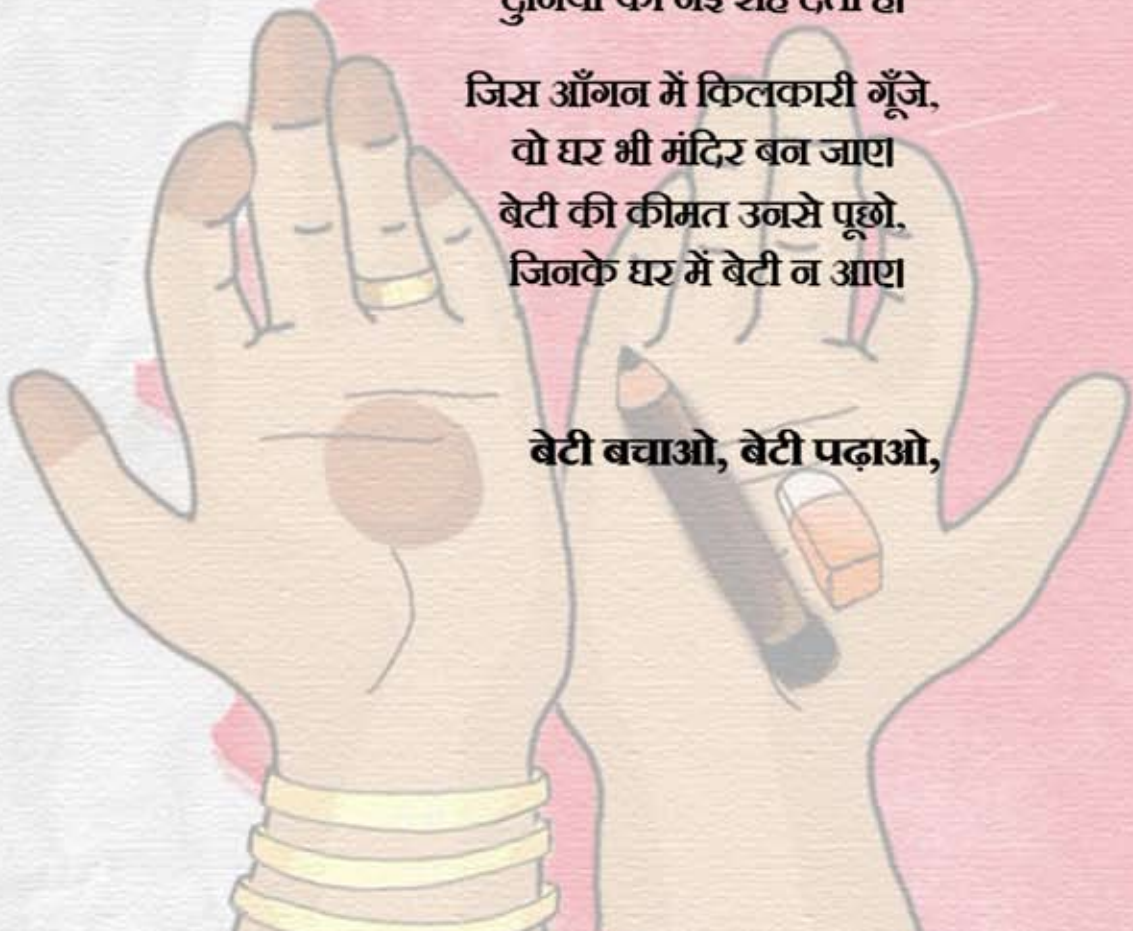 दुनिया को नई राह देती है।
जिस आँगन में किलकारी गूँजे,
वो घर भी मंदिर बन जाए।
बेटी की कीमत उनसे पूछो,
जिनके घर में बेटी न आए।
बेटी बचाओ, बेटी पढ़ाओ,